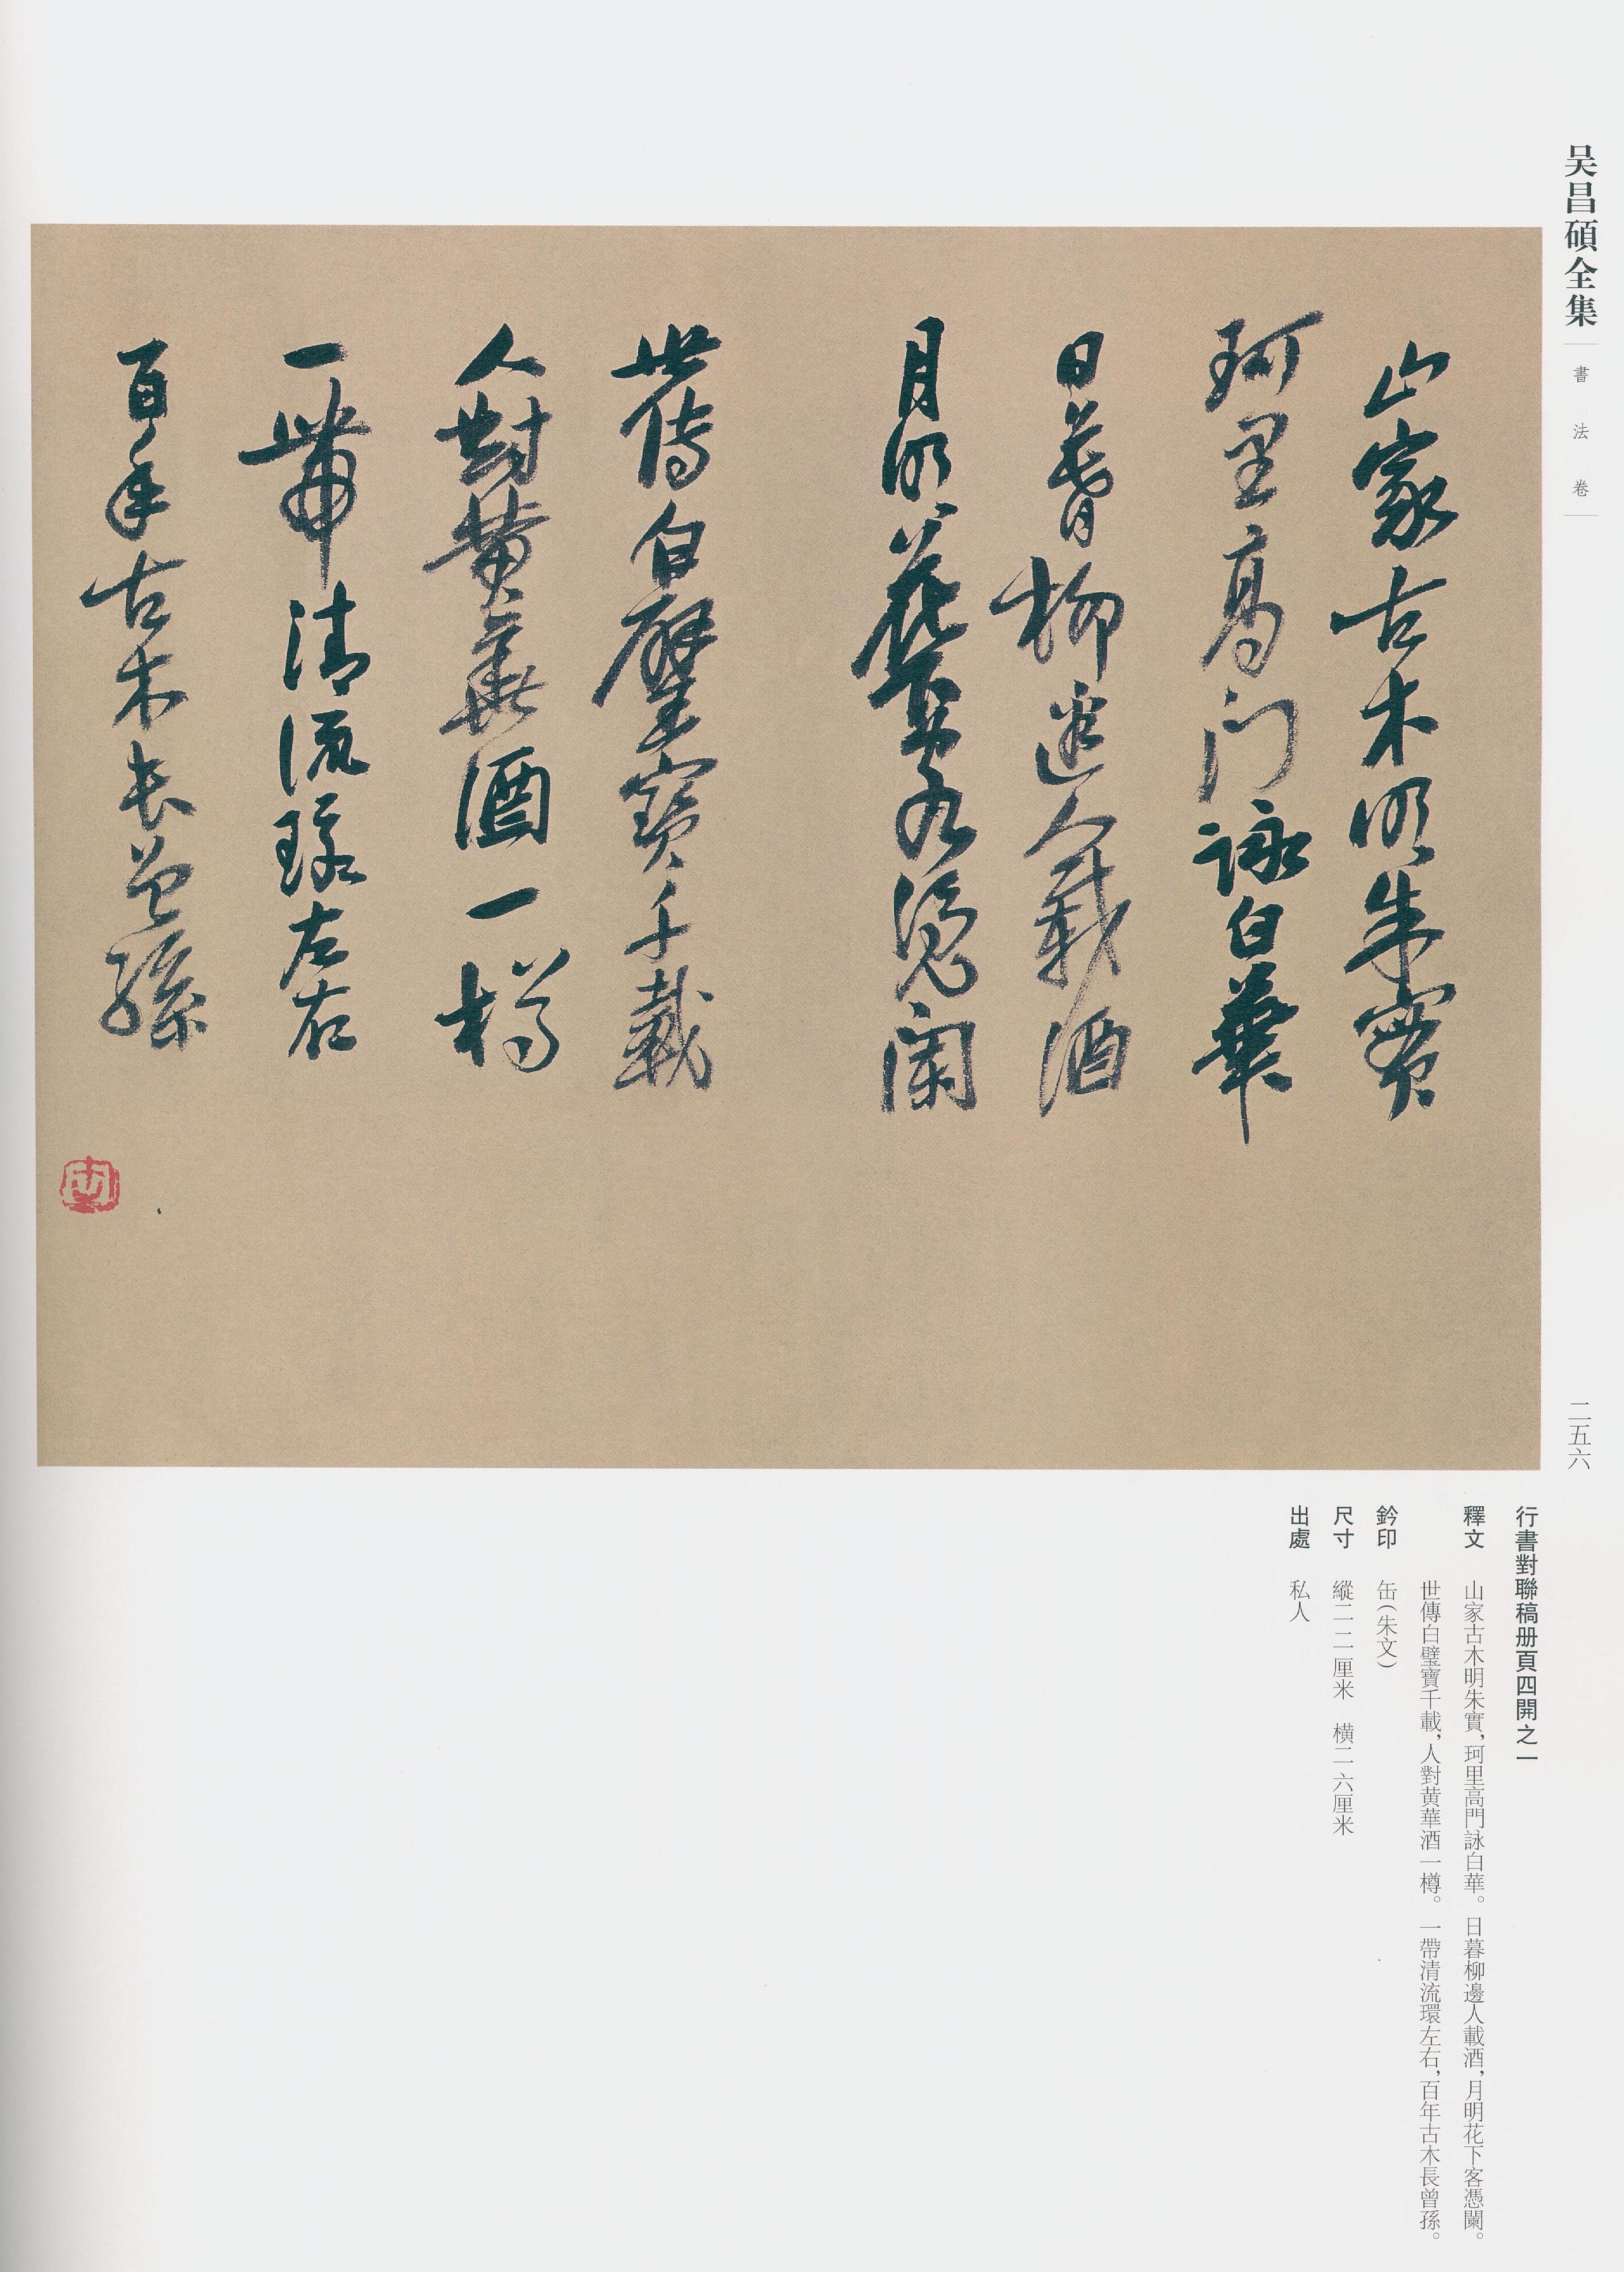 吴昌碩全集
書法卷
二五六
山家古木明朱實
珂里高門詠白華
日暮柳邊人載酒
月明花下客憑闌
世傳白璧寶千載
人對黄華酒一樽
一帶清流環左右
百年古木長曾孫
缶
行書對聯稿册頁四開之一
釋文 山家古木明朱實，珂里高門詠白華。日暮柳邊人載酒，月明花下客憑闌。
世傳白璧寶千載，人對黄華酒一樽。一帶清流環左右，百年古木長曾孫。
鈐印 缶（朱文）
尺寸 縱二二厘米 横二六厘米
出處 私人